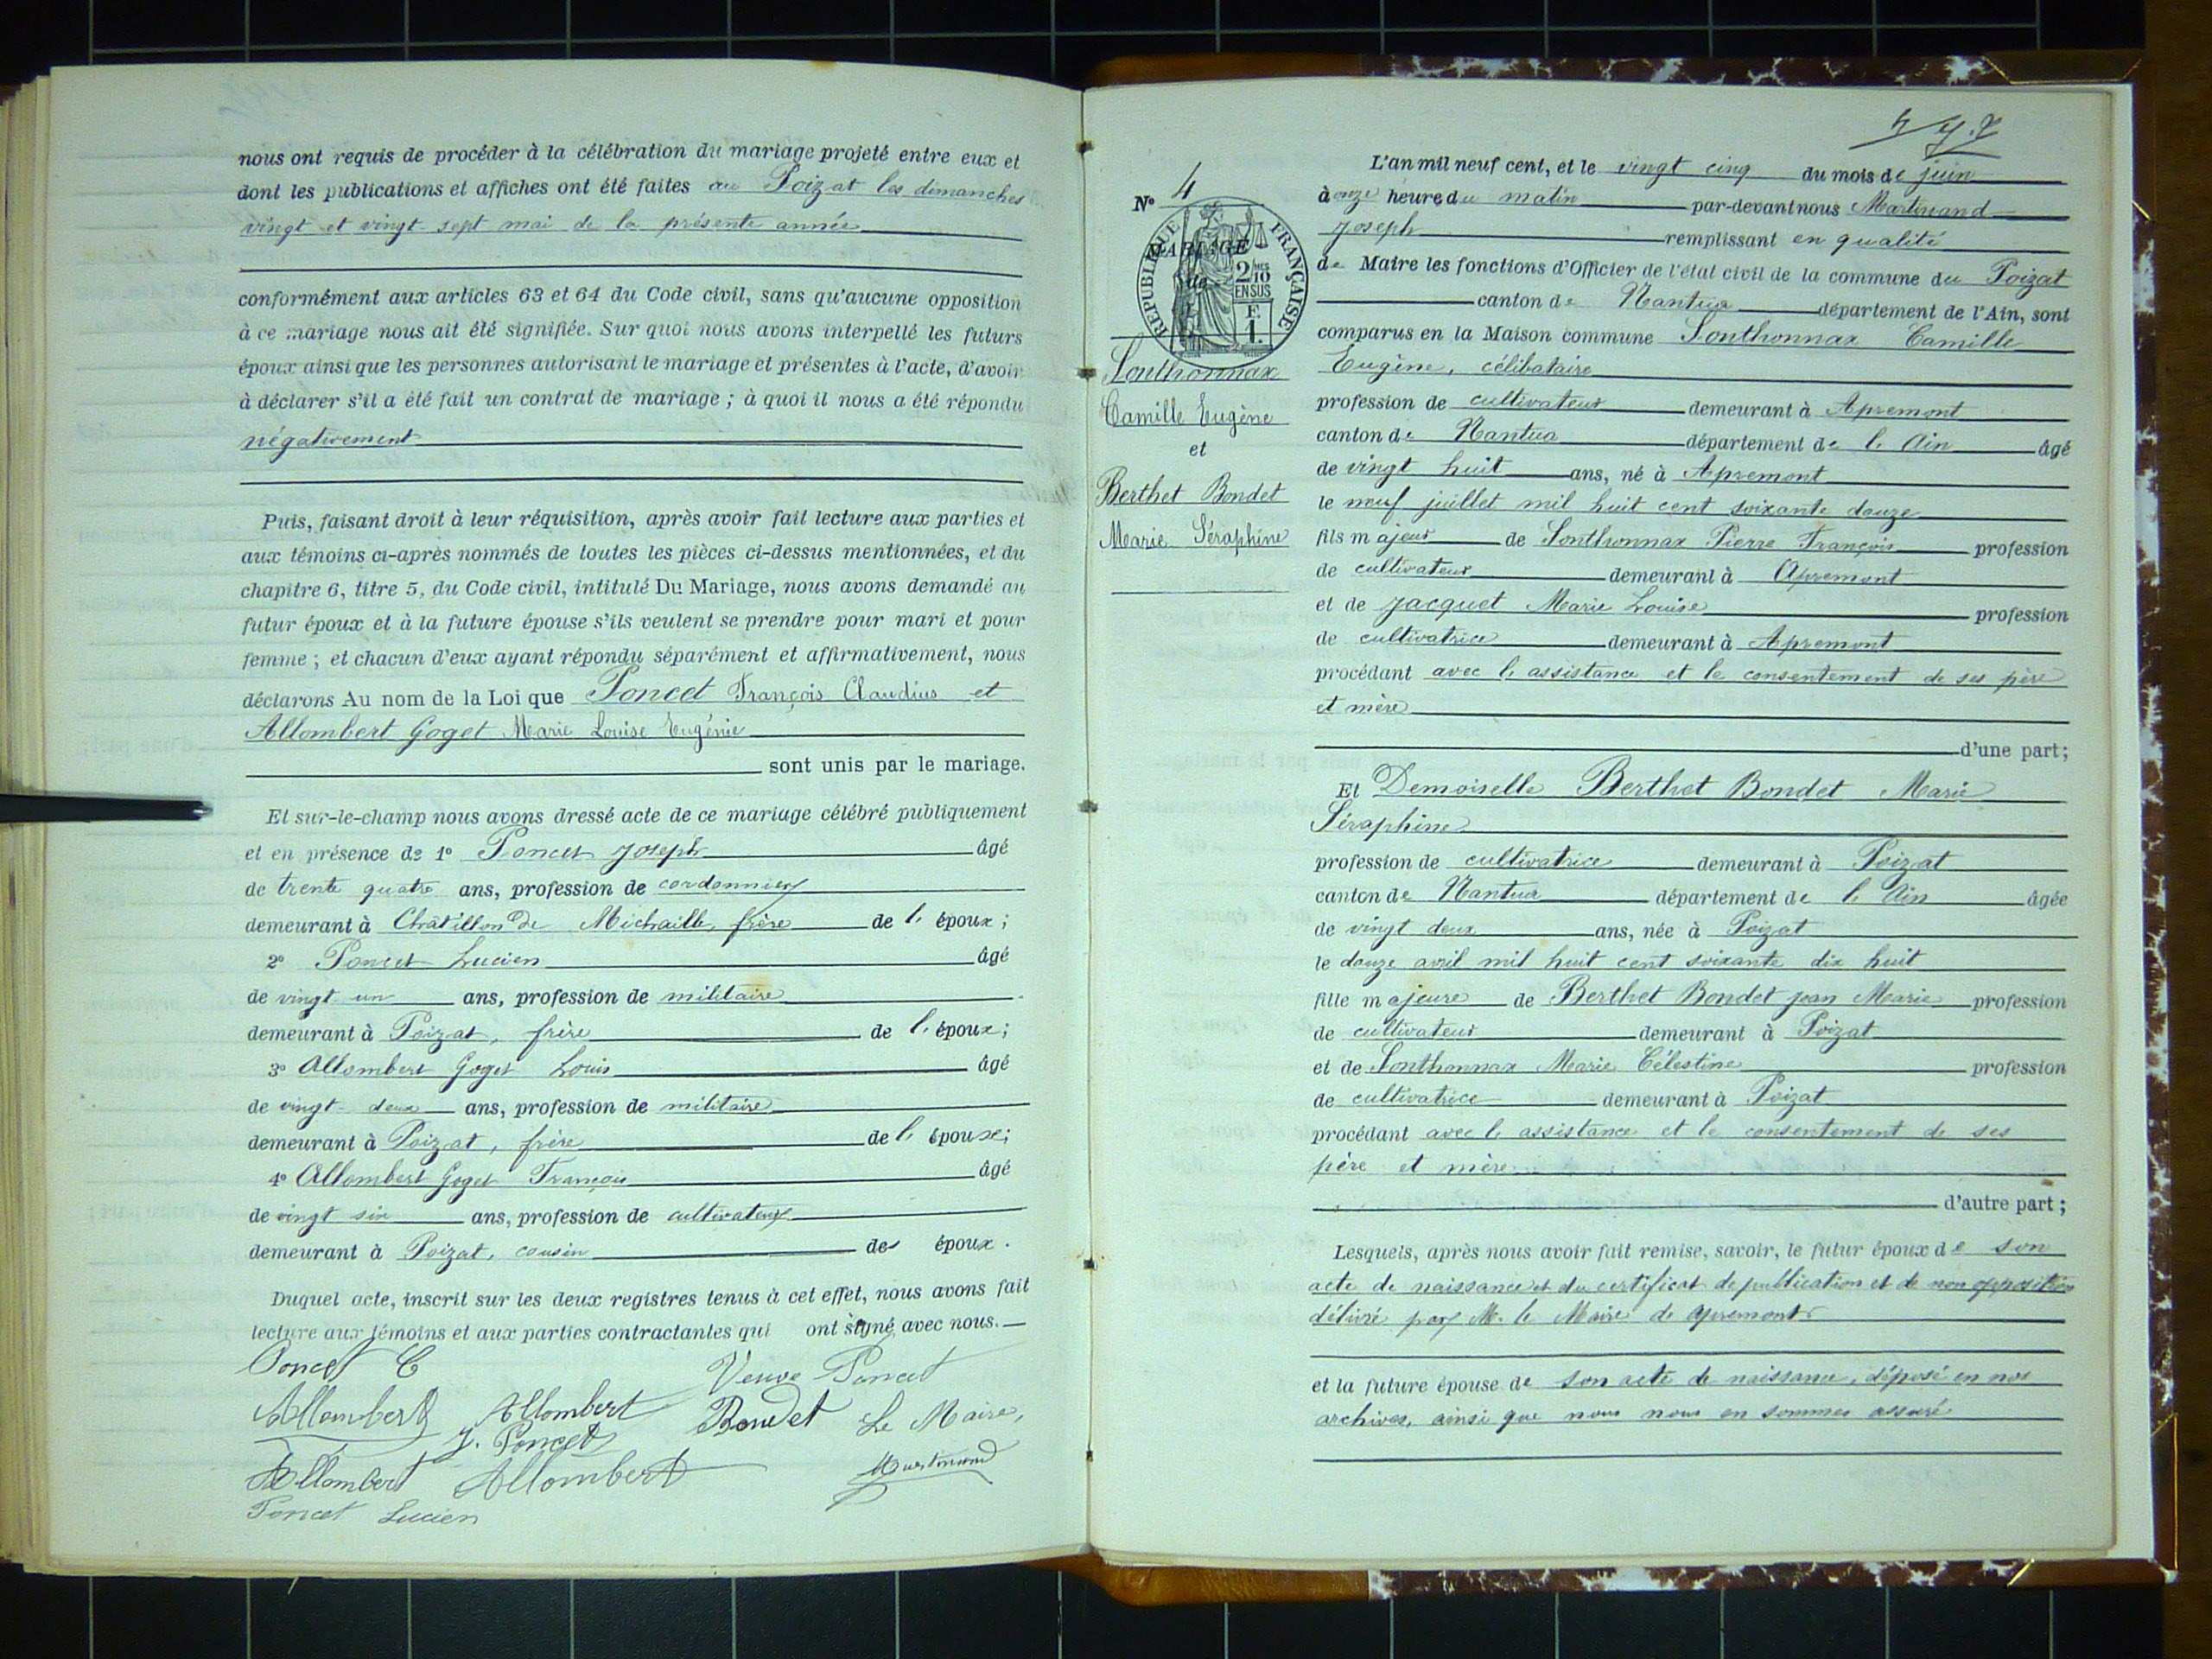 nous ont requis de procéder à la célébration du mariage projeté entre eux et
dont les publications et affiches ont été faites au Poizat les dimanches
vingt et vingt-sept mai de la présente année
conformément aux articles 63 et 64 du Code civil, sans qu'aucune opposition
à ce mariage nous ait été signifiée. Sur quoi nous avons interpellé les futurs
époux ainsi que les personnes autorisant le mariage et présentes à l'acte, d'avoir
à déclarer s'il a été fait un contrat de mariage ; à quoi il nous a été répondu
négativement
Puis, faisant droit à leur réquisition, après avoir fait lecture aux parties et
aux témoins ci-après nommés de toutes les pièces ci-dessus mentionnées, et du
chapitre 6, titre 5, du Code civil, intitulé Du Mariage, nous avons demandé au
futur époux et à la future épouse s'ils veulent se prendre pour mari et pour
femme ; et chacun d'eux ayant répondu séparément et affirmativement, nous
déclarons Au nom de la Loi que Poncet François Claudius et
Allombert Goget Marie Louise Eugénie
sont unis par le mariage.
Et sur-le-champ nous avons dressé acte de ce mariage célébré publiquement
et en présence de 1° Poncet Joseph âgé
de trente quatre ans, profession de cordonnier
demeurant à Châtillon de Michaille, frère de l' époux ;
2° Poncet Lucien âgé
de vingt un ans, profession de militaire
demeurant à Poizat, frère de l' époux ;
3° Allombert Goget Louis âgé
de vingt-deux ans, profession de militaire
demeurant à Poizat, frère de l' épouse ;
4° Allombert Goget François âgé
de vingt six ans, profession de cultivateur
demeurant à Poizat, cousin des époux.
Duquel acte, inscrit sur les deux registres tenus à cet effet, nous avons fait
lecture aux témoins et aux parties contractantes qui ont signé avec nous.
Poncet C Veuve Poncet
Allombert Allombert Bondet Le Maire,
J. Poncet
Allombert Allombert Martinand
Poncet Lucien
497
N° 4
MARIAGE
de
RÉPUBLIQUE FRANÇAISE
2/10
EN SUS
F
1.
Sonthonnax
Camille Eugène
et
Berthet Bondet
Marie Séraphine
L'an mil neuf cent, et le vingt cinq du mois de juin
à onze heure du matin par-devant nous Martinand
Joseph remplissant en qualité
de Maire les fonctions d'Officier de l'état civil de la commune du Poizat
canton de Nantua département de l'Ain, sont
comparus en la Maison commune Sonthonnax Camille
Eugène, célibataire
profession de cultivateur demeurant à Apremont
canton de Nantua département de l'Ain âgé
de vingt huit ans, né à Apremont
le neuf juillet mil huit cent soixante douze
fils majeur de Sonthonnax Pierre François profession
de cultivateur demeurant à Apremont
et de Jacquet Marie Louise profession
de cultivatrice demeurant à Apremont
procédant avec l'assistance et le consentement de ses père
et mère
d'une part ;
Et Demoiselle Berthet Bondet Marie
Séraphine
profession de cultivatrice demeurant à Poizat
canton de Nantua département de l'Ain âgée
de vingt deux ans, née à Poizat
le douze avril mil huit cent soixante dix huit
fille majeure de Berthet Bondet Jean Marie profession
de cultivateur demeurant à Poizat
et de Sonthonnax Marie Célestine profession
de cultivatrice demeurant à Poizat
procédant avec l'assistance et le consentement de ses
père et mère
d'autre part ;
Lesquels, après nous avoir fait remise, savoir, le futur époux de son
acte de naissance et du certificat de publication et de non opposition
délivré par M. le Maire de Apremont
et la future épouse de son acte de naissance, déposé en nos
archives, ainsi que nous nous en sommes assuré